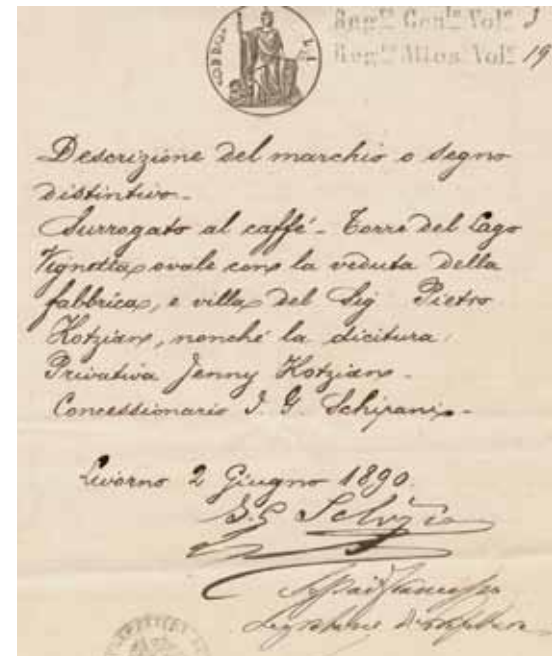 Reg.ro Gen.le Vol.e 3
Reg.ro Attes Vol.e 19
Descrizione del marchio o segno
distintivo-
Surrogato al caffé- Torre del Lago
Vignetta ovale con la veduta della
fabbrica, e villa del Sig Pietro
Kotzian, nonché la dicitura:
Privativa Jenny Kotzian-
Concessionario I. G. Schipani-
Livorno 2 Giugno 1890.